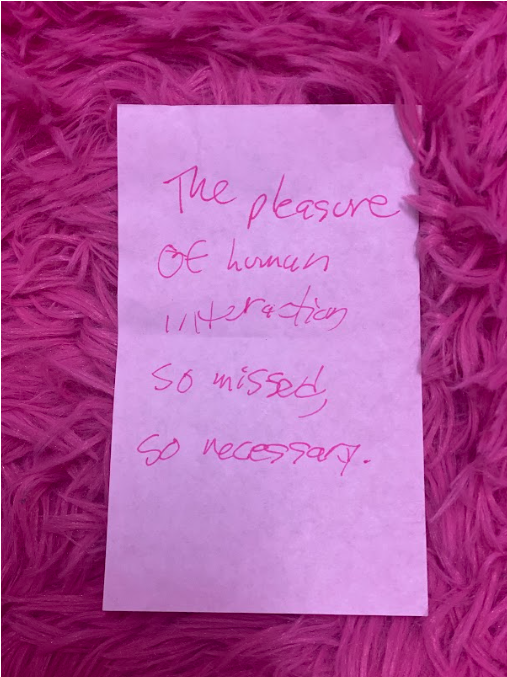 The pleasure
of human
interaction
so missed,
so necessary.